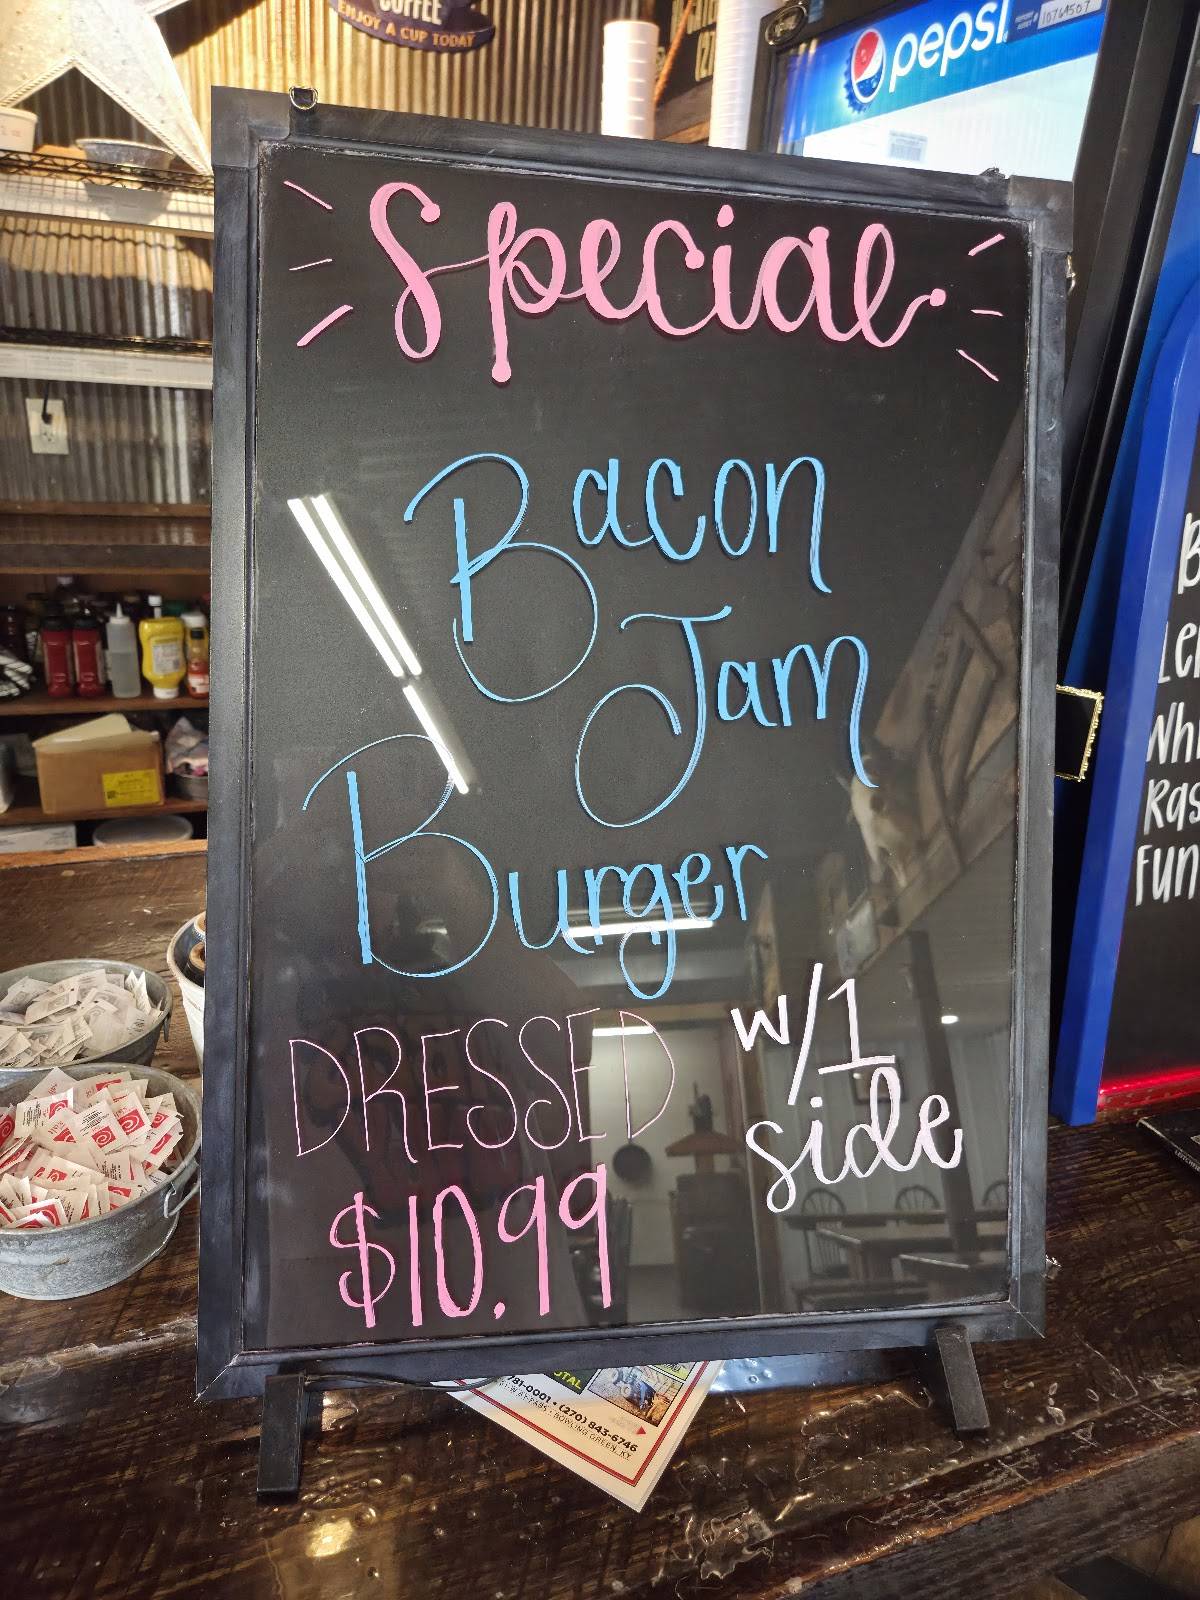 COFFEE
ENJOY A CUP TODAY
pepsi
10764507
Special
Bacon
Jam
Burger
DRESSED
w/1
side
$10.99
781-0001 • (270) 843-6746
BOWLING GREEN, KY